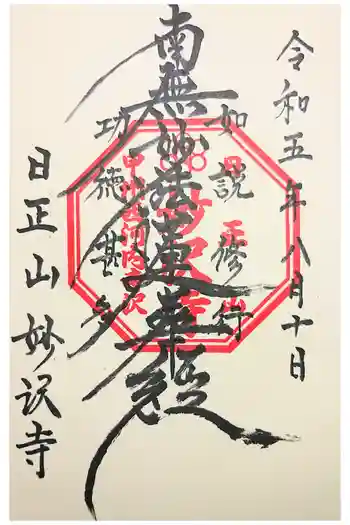 令和五年八月十日
如説修行
南無妙法蓮華経
功徳甚多
日正山妙沢寺
日正山